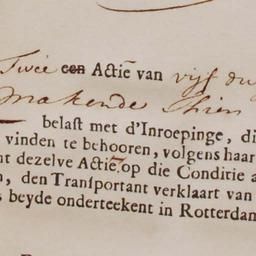 Twee een Actiē van vijf du
makende Thien
belast met d'Inroepinge, di
vinden te behooren, volgens haar
nt dezelve Actiē.op die Conditie a
n, den Transportant verklaart van
s beyde onderteekent in Rotterdan